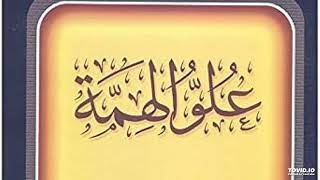 عُلُوُّ الهِمَّة
TOVID.IO